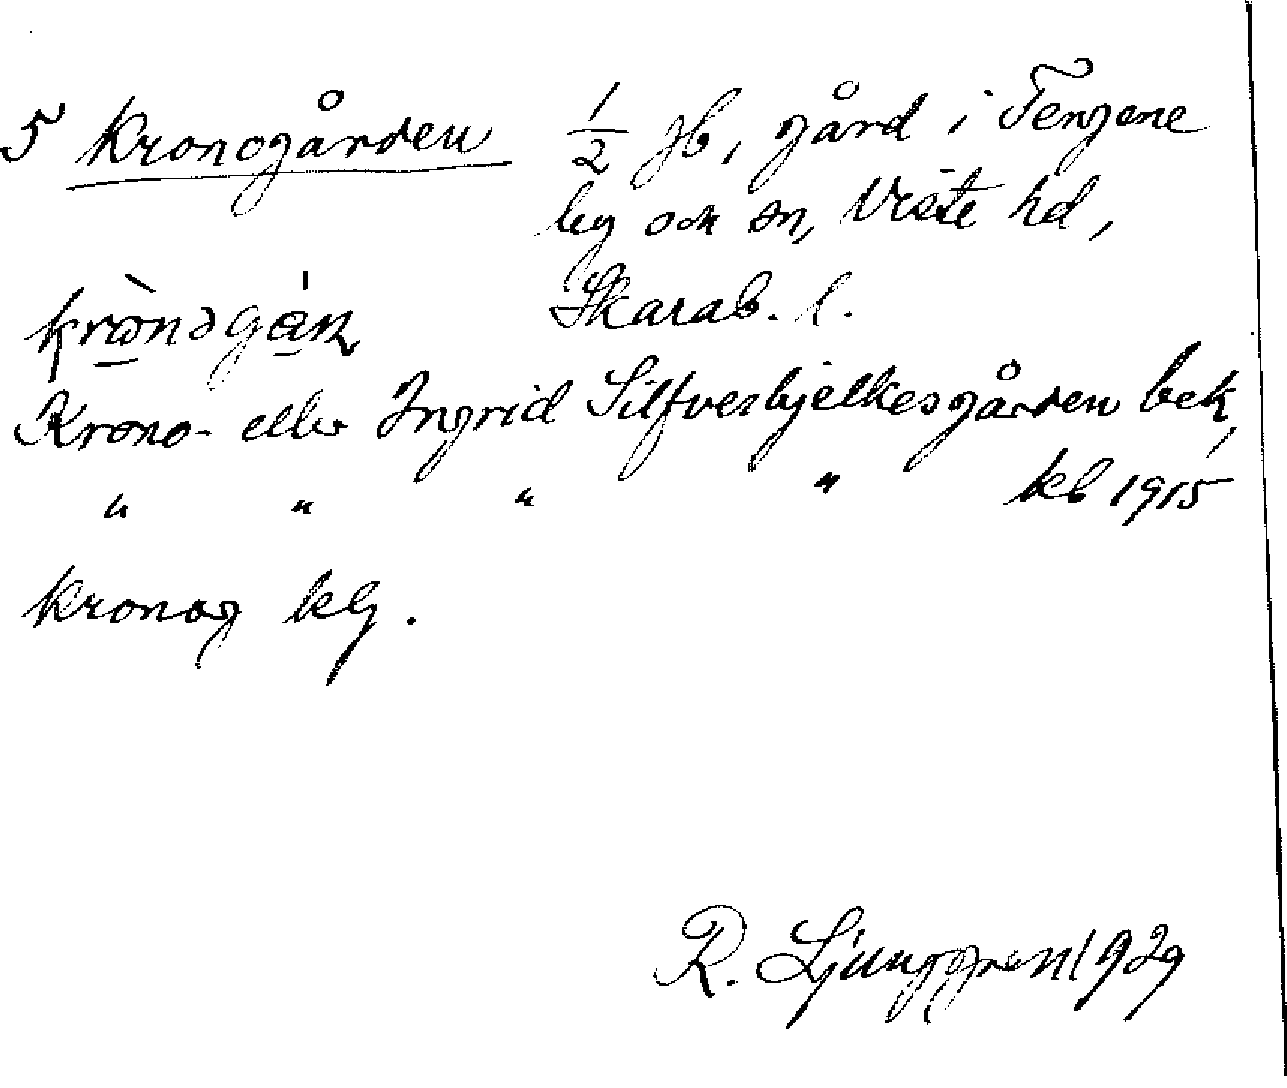 5 Kronogården ½ jb, gård i Tengene
by och sn, Viste hd,
Skarab. l.
Krono- eller Ingrid Silfverhjelkesgården bek,
" " " " kb 1915
Kronog kG.
R. Ljunggren 1929